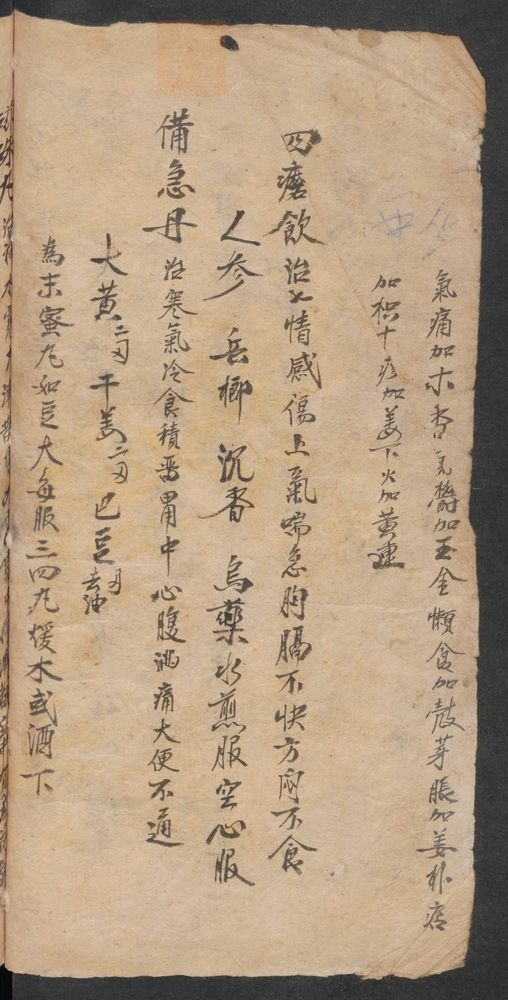 氣痛加木香氣欝加玉金懶食加殼芽脹加姜朴痞
加枳十痰加姜下火加黄連
四磨飲治七情感傷上氣喘急胸膈不快方悶不食
人参 兵榔 沉香 烏藥水煎服空心服
備急丹治寒氣冷食積畱胃中心腹満痛大便不通
大黄二刄干姜二刄巴豆刄去油
為末蜜丸如豆大每服三四丸煖水或酒下